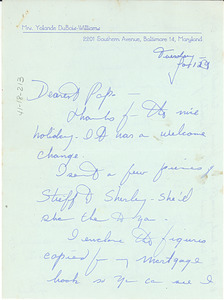 Mrs. Yolande DuBois-Williams
2301 Southern Avenue, Baltimore 14, Maryland
Tuesday
Dearest Papa —
Thanks for the nice
holiday. It was a welcome
change.
I sent a few pieces of
Stuff to Shirley - she'd
show them to you.
I enclose the figures
copied from my mortgage
book so you can see I